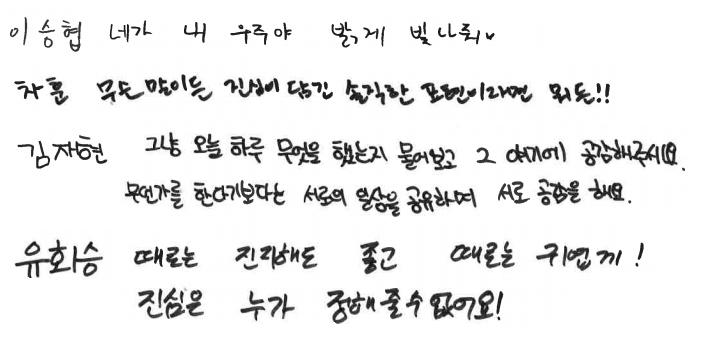 이승협 네가 내 우주야 밝게 빛나줘♥
차훈 무슨 말이든 진심이 담긴 솔직한 표현이라면 뭐든!!
김재현 그냥 오늘 하루 무엇을 했는지 물어보고 그 얘기에 공감해주시요.
무언가를 한다기보다는 서로의 일상을 공유하며 서로 공감을 해요.
유회승 때로는 진지해도 좋고 때로는 귀엽게!
진심은 누가 정해줄수없어요!